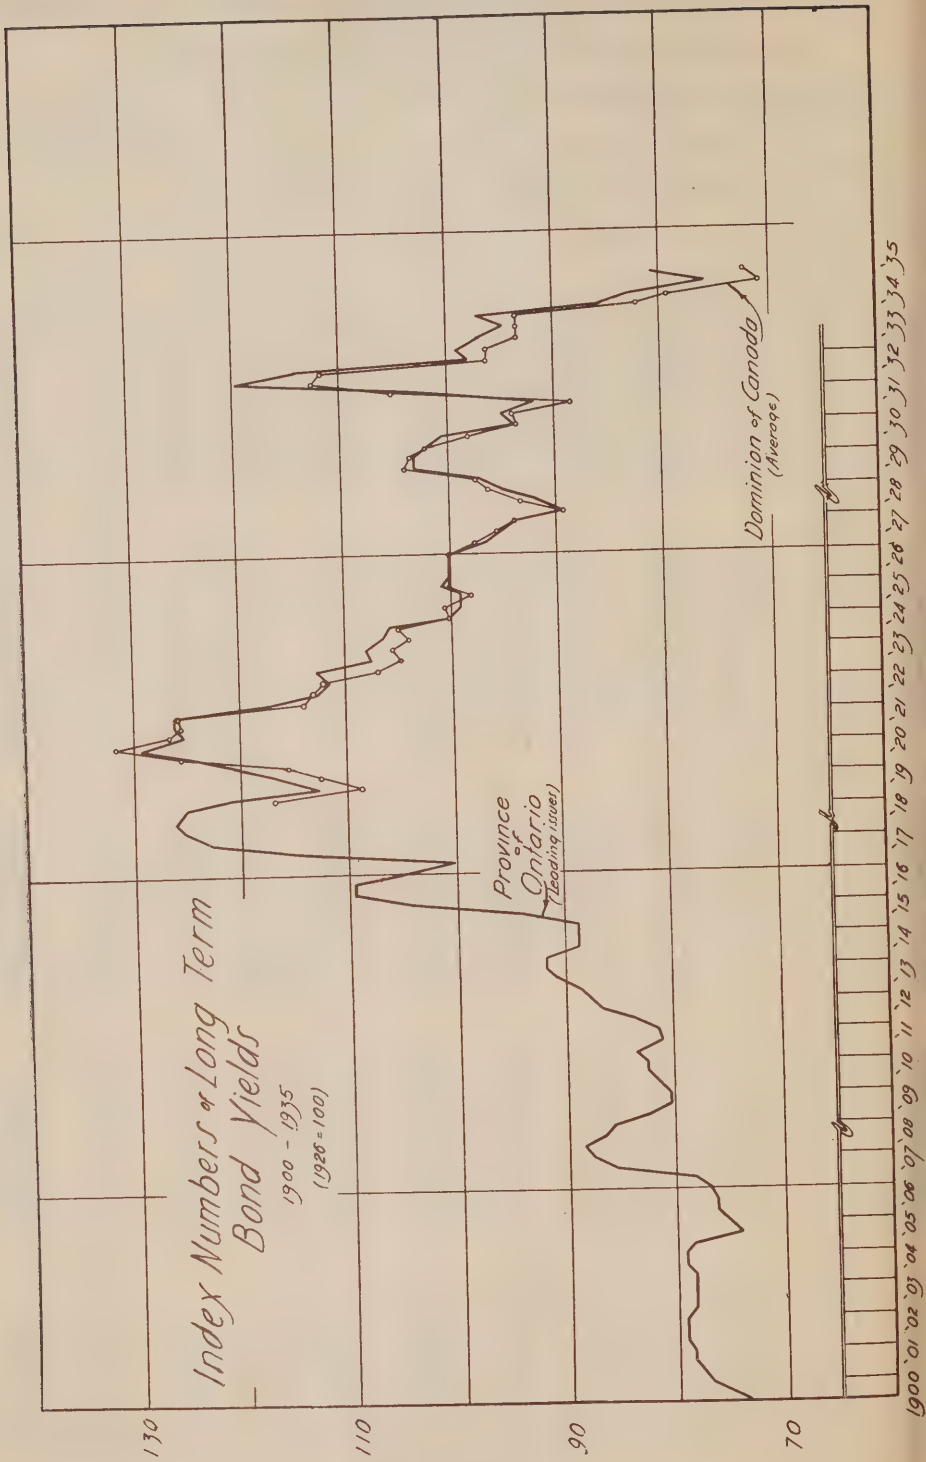 Index Numbers of Long Term
Bond Yields
1900 - 1935
(1926=100)
130
110
90
70
Province
of
Ontario
(Leading issues)
Dominion of Canada
(Average)
1900 '01 '02 '03 '04 '05 '06 '07 '08 '09 '10 '11 '12 '13 '14 '15 '16 '17 '18 '19 '20 '21 '22 '23 '24 '25 '26 '27 '28 '29 '30 '31 '32 '33 '34 '35